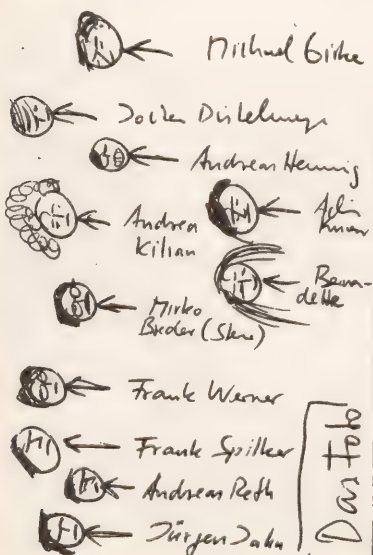 Michael Girke
Jochen Distelmeyer
Andreas Henning
Andrea
Kilian
Achim
Knorr
Berna-
dette
Mirko
Breder (Stene)
Frank Werner
Frank Spilker
Andreas Reth
Jürgen Jahn
Das Foto